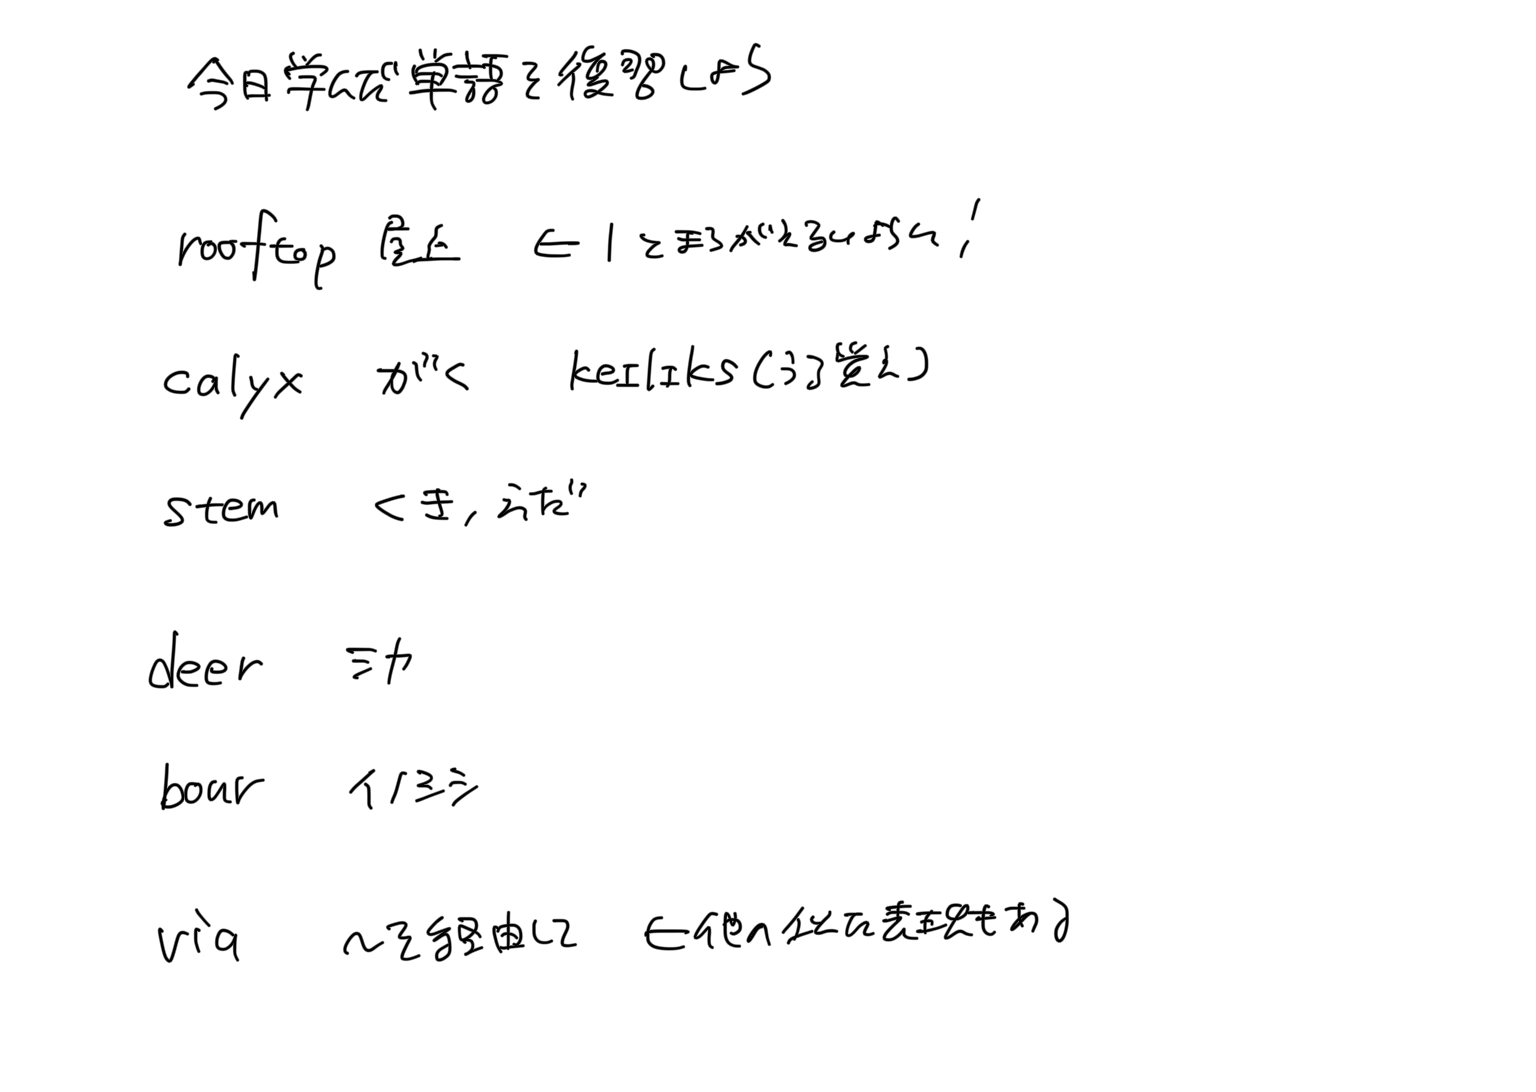 今日学んだ単語を復習しよう
rooftop 屋上 ← lとまちがえないように!
calyx がく keɪlɪks(うろ覚え)
stem くき,えだ
deer シカ
boar イノシシ
via ~を経由して ←他の似た表現もある